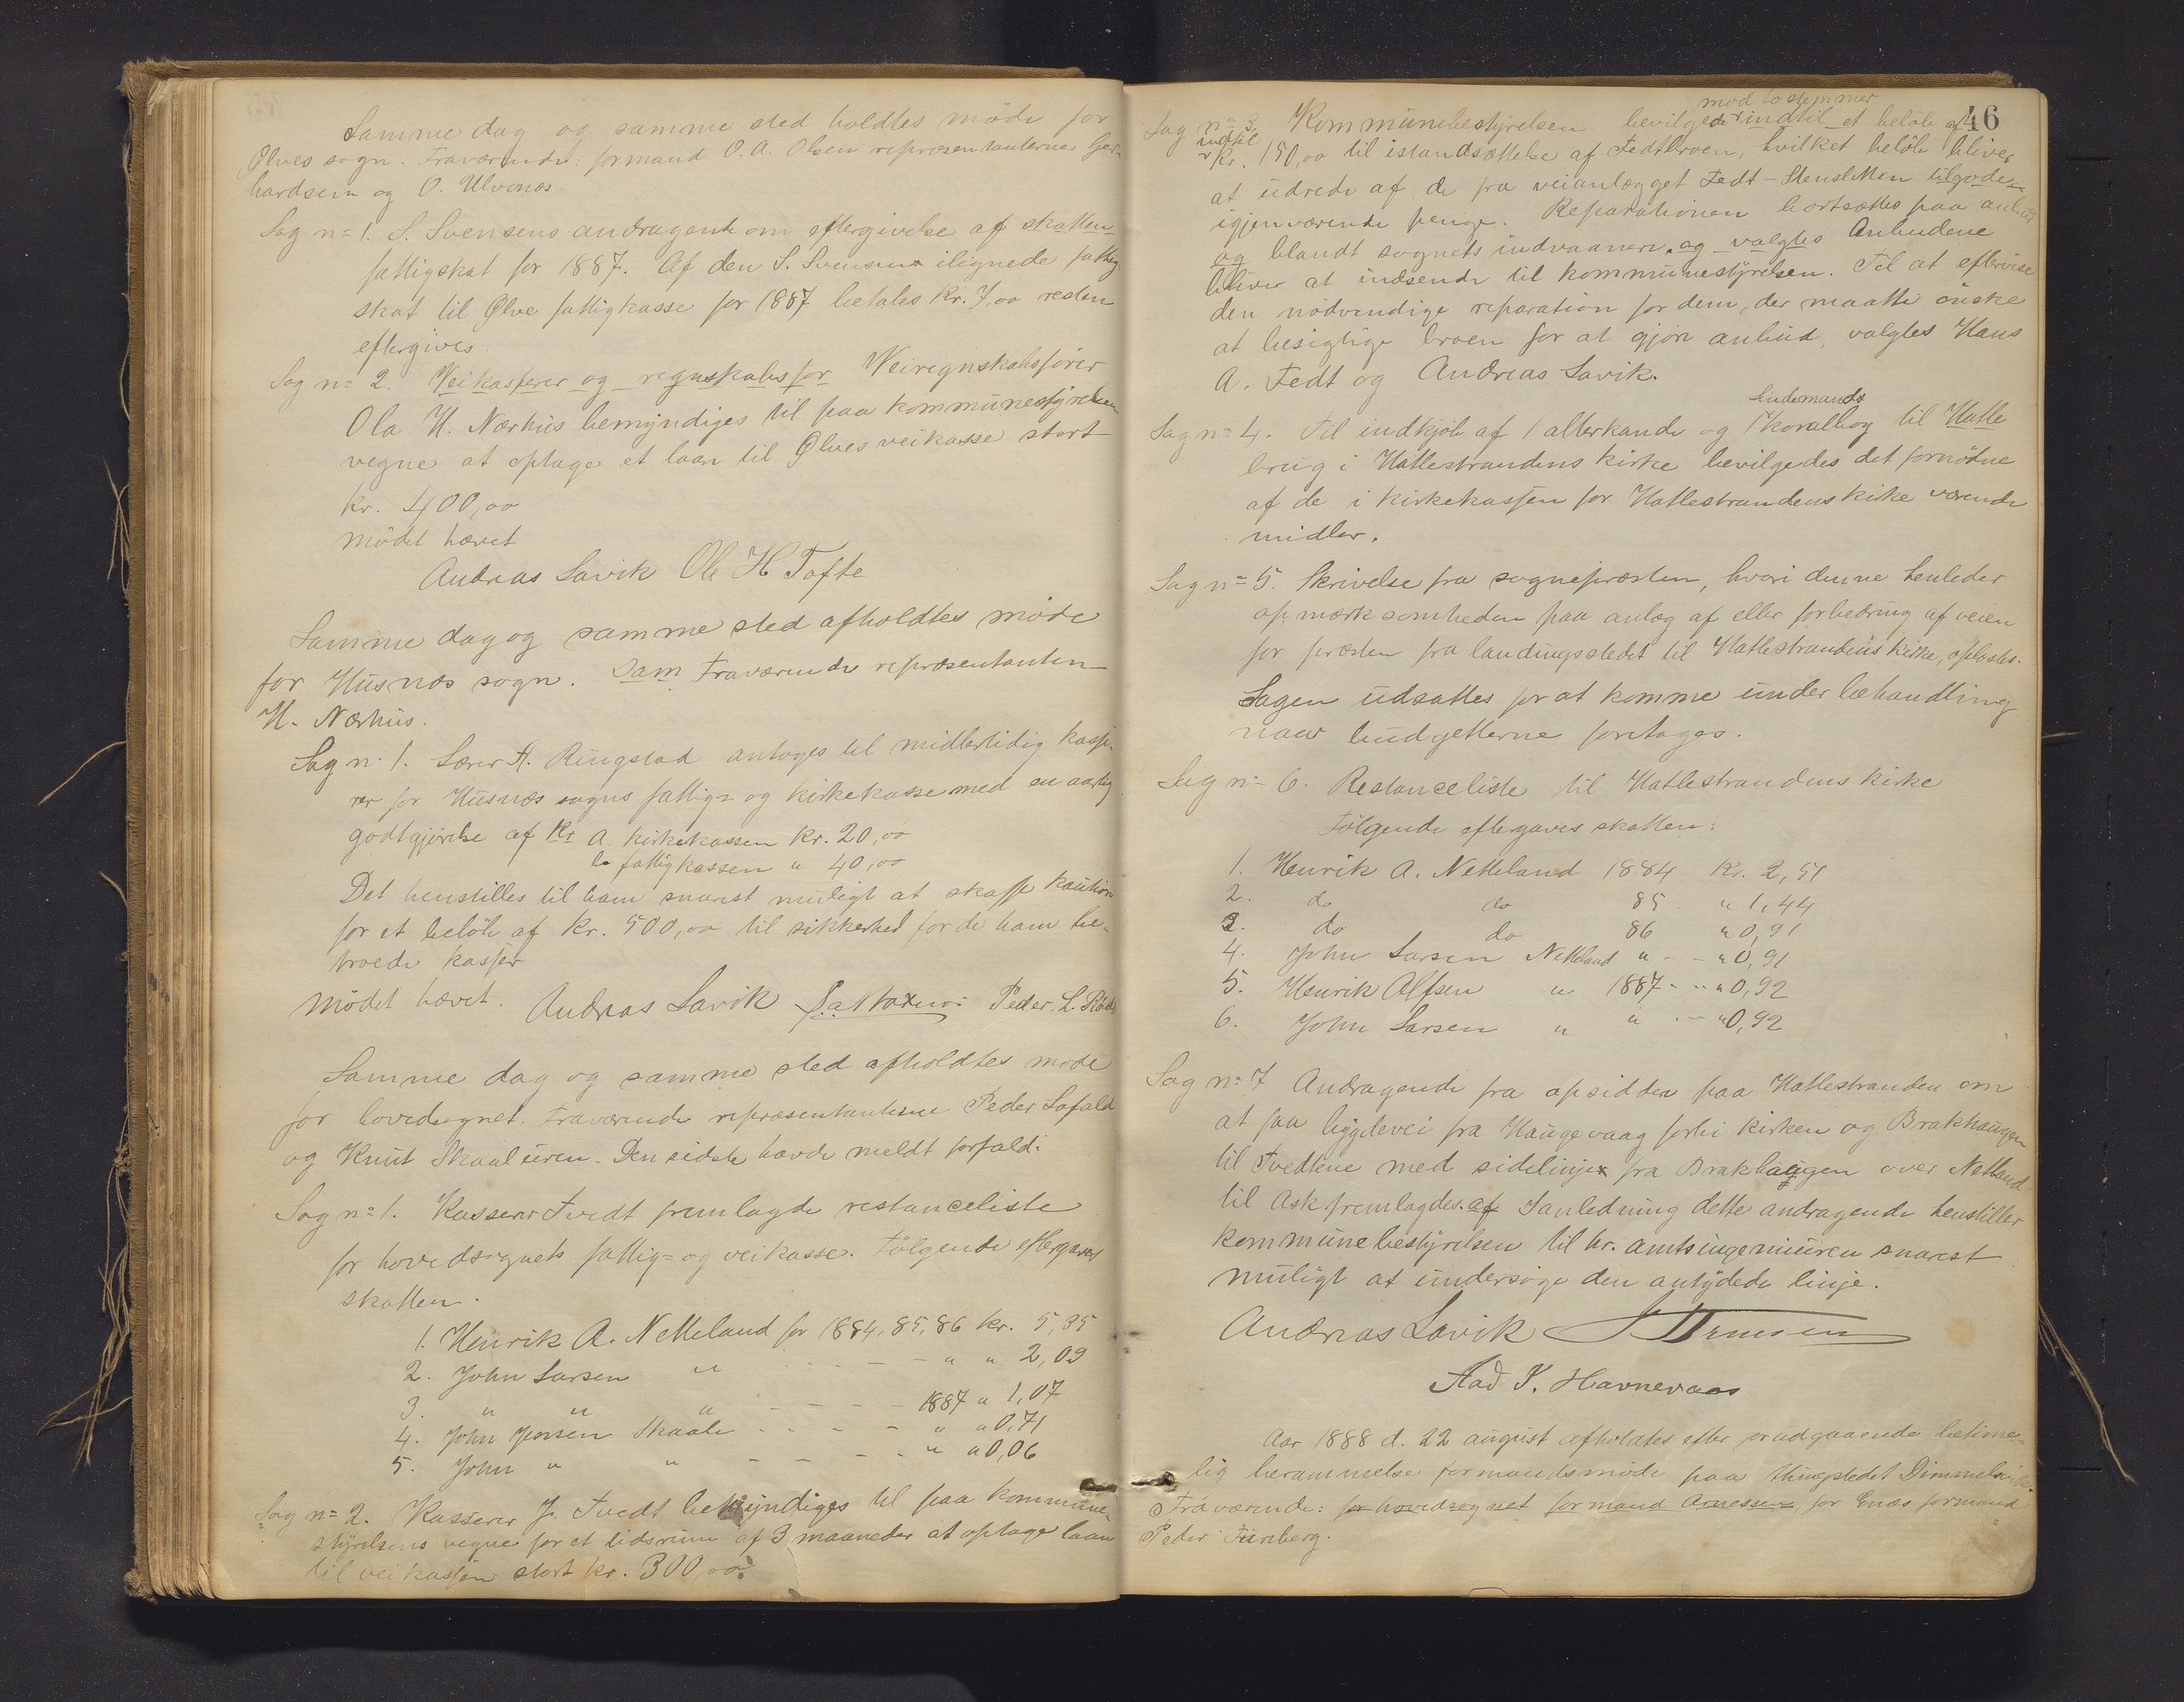 Samme dag og samme sted holdtes møde for
Ølves sogn. Fraværende: formand O. A. Olsen repræsentanterne Ger-
hardsen og O. Ulvenæs.
Sag n= 1. S. Svensens andragende om eftergivelse af skatten
fattigskat for 1887. Af den S. Svensen ilignede fattig
skat til Ølve fattigkasse for 1887 betales Kr. 7,00 resten
eftergives
Sag n= 2. Veikasserer og regnskabsfør Veiregnskabsfører
Ola H. Nærhus bemyndiges til paa kommunestyrelsen
vegne at optage et laan til Ølves veikasse stort
kr. 400,00
mødet hævet
Andreas Lavik Ole H Tofte
Samme dag og samme sted afholdtes møde
for Husnæs sogn. Sam Fraværende repræsentanten
H. Nærhus.
Sag n: 1. Lærer A. Ringstad antages til midlertidig kasse-
rer for Husnæs sogns fattig= og kirkekasse med en aarlig
godtgjørelse af Kr a. kirkekassen Kr. 20,00
b. fattigkassen " 40,00
Det henstilles til ham snarest muligt at skaffe kaution
for et beløb af Kr. 500,00 til sikkerhed for de ham be-
troede kasser
mødet hævet. Andreas Lavik Peder. L.
Samme dag og samme sted afholdtes møde
for hovedsognet. Fraværende repræsentanterne Peder Lofald
og Knut Skaaluren. Den sidste havde meldt forfald.
Sag n= 1. Kasserer Tvedt fremlagde restanceliste
for hovedsognets fattig= og veikasse. Følgende eftergaves
skatten.
1. Henrik A. Netteland for 1884, 85, 86 kr. 5,35
2. John Larsen " - - - " " 2,09
3. " " " - - - - 1887 " 1,07
4. John Jensen Skaale - - - - " " 0,71
5. John " " - - - - " " 0,06
Sag n= 2. Kasserer J. Tvedt bemyndiges til paa kommune-
styrelsens vegne for et tidsrum af 3 maaneder at optage laan
til veikassen stort kr. 300,00.
46
mod to stemmer
Sag n= 3. Kommunebestyrelsen bevilgede indtil et beløb af
indtil
Kr. 150,00 til istandsættelse af Fedtbroen, hvilket beløb bliver
at udrede af de fra veianlægget Fedt-Stensletten tilgode
igjenværende penge. Reparationen bortsættes paa anbud
og blandt sognets indvaanere. og valgtes Anbudene
bliver at indsende til kommunestyrelsen. Til at eftervise
den nødvendige reparation for dem, der maatte ønske
at besigtige broen for at gjøre anbud, valgtes Hans
A. Fedt og Andreas Lavik.
Lindemands
Sag n= 4. Til indkjøb af 1 alterkande og 1 koralbog til Hatle
brug i Hatlestrandens kirke bevilgedes det fornødne
af de i kirkekassen for Hatlestrandens kirke værende
midler.
Sag n= 5. Skrivelse fra sognepræsten, hvori denne henleder
opmærksomheden paa anlæg af eller forbedring af veien
for præsten fra landingsstedet til Hatlestrandens kirke, oplæstes.
Sagen udsattes for at komme under behandling
naar budgetterne foretages.
Sag n= 6. Restanceliste til Hatlestrandens kirke
Følgende eftergaves skatten:
1. Henrik A. Netteland 1884 Kr. 2,51
2. do do 85 " 1,44
3. do do 86 " 0,91
4. John Larsen Netteland " - - " 0,91
5. Henrik Alfsen " 1887 - - " 0,92
6. John Larsen " " - - " 0,92
Sag n= 7 Andragende fra opsidder paa Hatlestranden om
at faa bygdevei fra Haugevaag forbi kirken og Brakhaugen
til Tvedtene med sidelinje fra Brakhaugen over Netland
til Ask fremlagdes. af I anledning dette andragende henstiller
kommunebestyrelsen til hr. amtsingeniøren snarest
muligt at undersøge den antydede linje.
Andreas Lavik
Aad J. Havnevaas
Aar 1888 d. 22 august afholdtes efter forudgaaende betime-
lig berammelse formandsmøde paa thingstedet Dimmelsvik.
Fraværende: for hovedsognet formand Arnessen, for Enæs formand
Peder Furuberg.